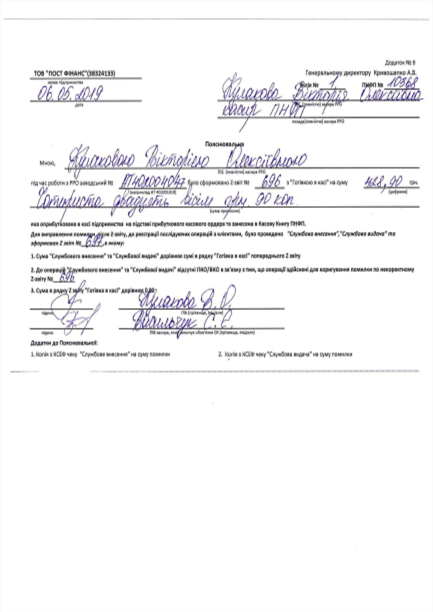 Додаток № 8
ТОВ "ПОСТ ФІНАНС"(38324133)
назва підприємства
Генеральному директору Кривошапко А.В.
06.05.2019
дата
Відділ № 1 ПНФП № 10368
Кулакова Вікторія Олексіївна
ПІБ (повністю) касира РРО
касир ПНФП
посада(повністю) касира РРО
Пояснювальна
Мною, Кулаковою Вікторією Олексіївною
ПІБ (повністю) касира РРО
під час роботи з РРО заводський № було сформовано Z-звіт № 696 з "Готівкою в касі" на суму 428,90 грн.
(наприклад АТ 401001018) (цифрами)
Чотириста двадцять вісім грн. 90 коп.
(сума прописом)
яка оприбуткована в касі підприємства на підставі прибуткового касового ордера та занесена в Касову Книгу ПНФП.
Для виправлення помилки, після Z-звіту, до реєстрації послідуючих операцій з клієнтами, було проведено "Службове внесення","Службова видача" та
сформован Z-звіт № 697 в якому:
1. Сума "Службового внесення" та "Службової видачі" дорівнює сумі в рядку "Готівка в касі" попереднього Z-звіту
2. До операцій "Службового внесення" та "Службової видачі" відсутні ПКО/ВКО в зв'язку з тим, що операції здійснені для коригування помилки по некоректному
Z-звіту № 696
3. Сума в рядку Z-звіту "Готівка в касі" дорівнює 0,00
Кулакова В. О.
підпис ПІБ (прізвище, ініціали)
С. С.
підпис
Додатки до Пояснювальної:
1. Копія з КСЕФ чеку "Службове внесення" на суму помилки 2. Копія з КСЕФ чеку "Службова видача" на суму помилки